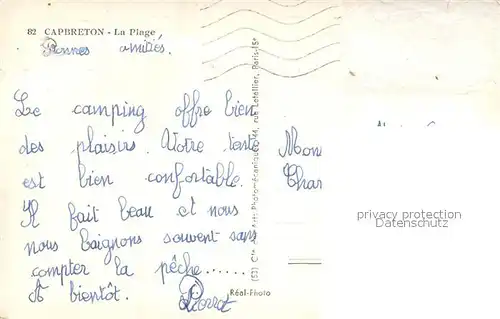 82 CAPBRETON - La Plage
Bonnes amitiés.
Le camping offre bien
des plaisirs. Votre tente
est bien confortable.
Il fait beau et nous
nous baignons souvent sans
compter la pêche......
A bientôt. Pierrot
Mon
Char
rue Letellier, Paris-15e
Réal-Photo
privacy protection
Datenschutz